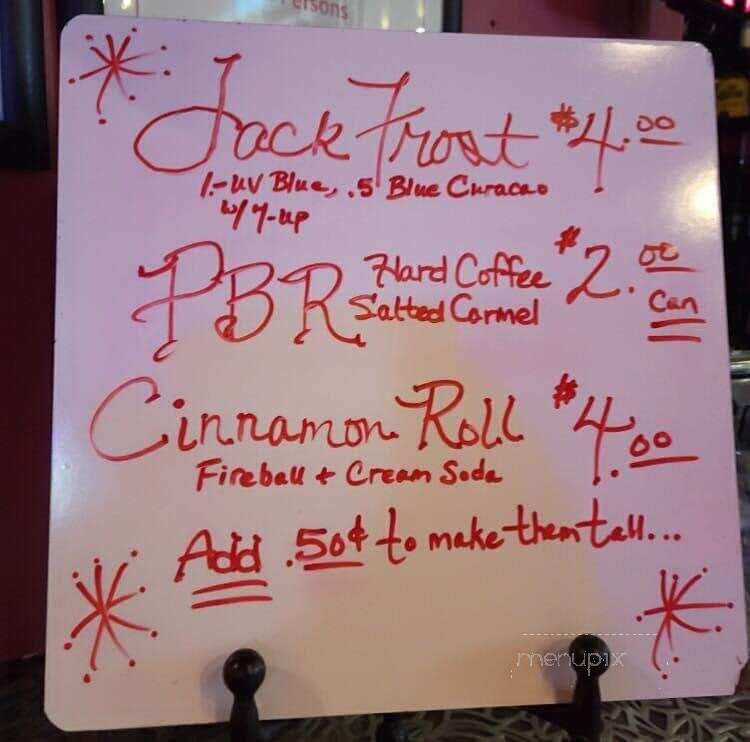 Persons
Jack Frost $4.00
1.-UV Blue, .5 Blue Curacao
w/ 7-up
PBR Hard Coffee $2.00
Salted Carmel Can
Cinnamon Roll $4.00
Fireball + Cream Soda
Add .50¢ to make them tall...
menupix